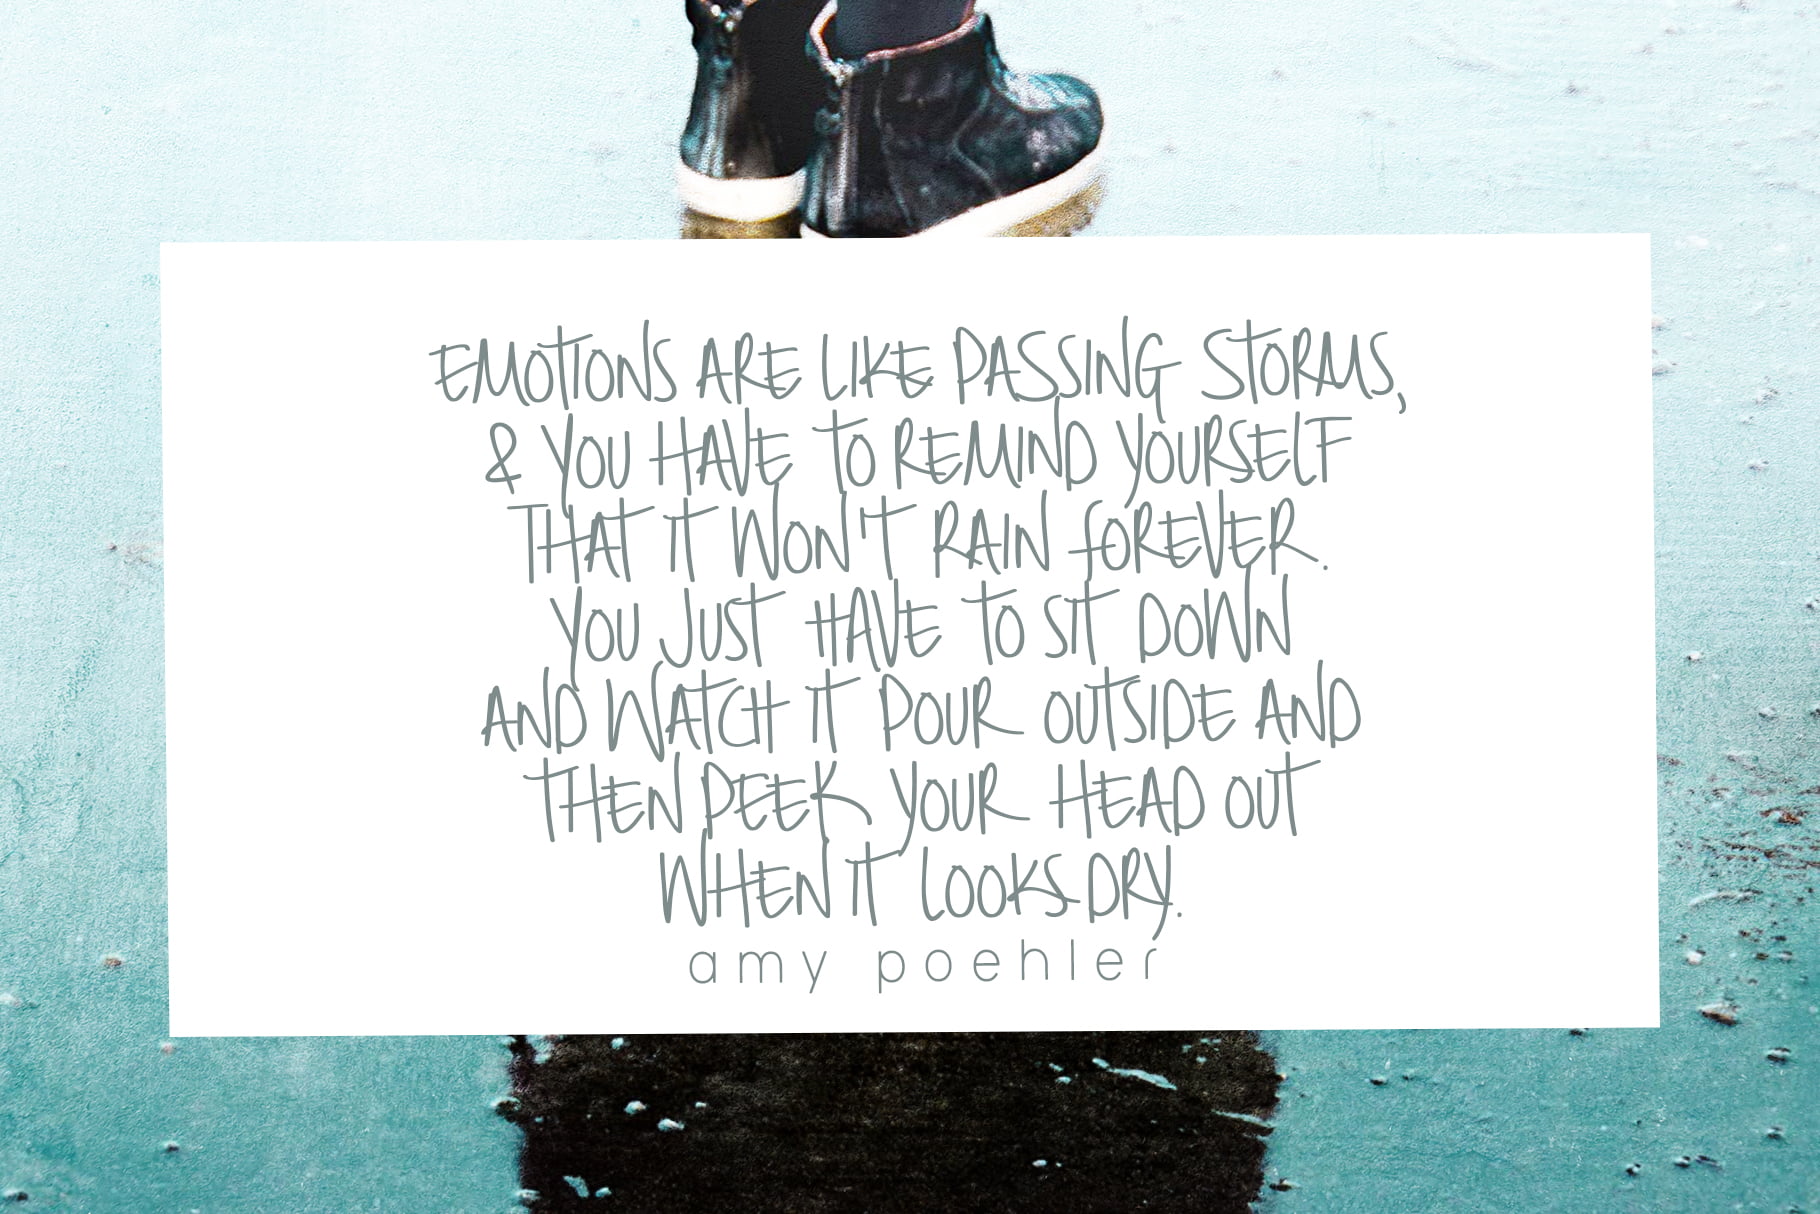 EMOTIONS ARE LIKE PASSING STORMS,
& YOU HAVE TO REMIND YOURSELF
THAT IT WON'T RAIN FOREVER.
YOU JUST HAVE TO SIT DOWN
AND WATCH IT POUR OUTSIDE AND
THEN PEEK YOUR HEAD OUT
WHEN IT LOOKS DRY.
amy poehler